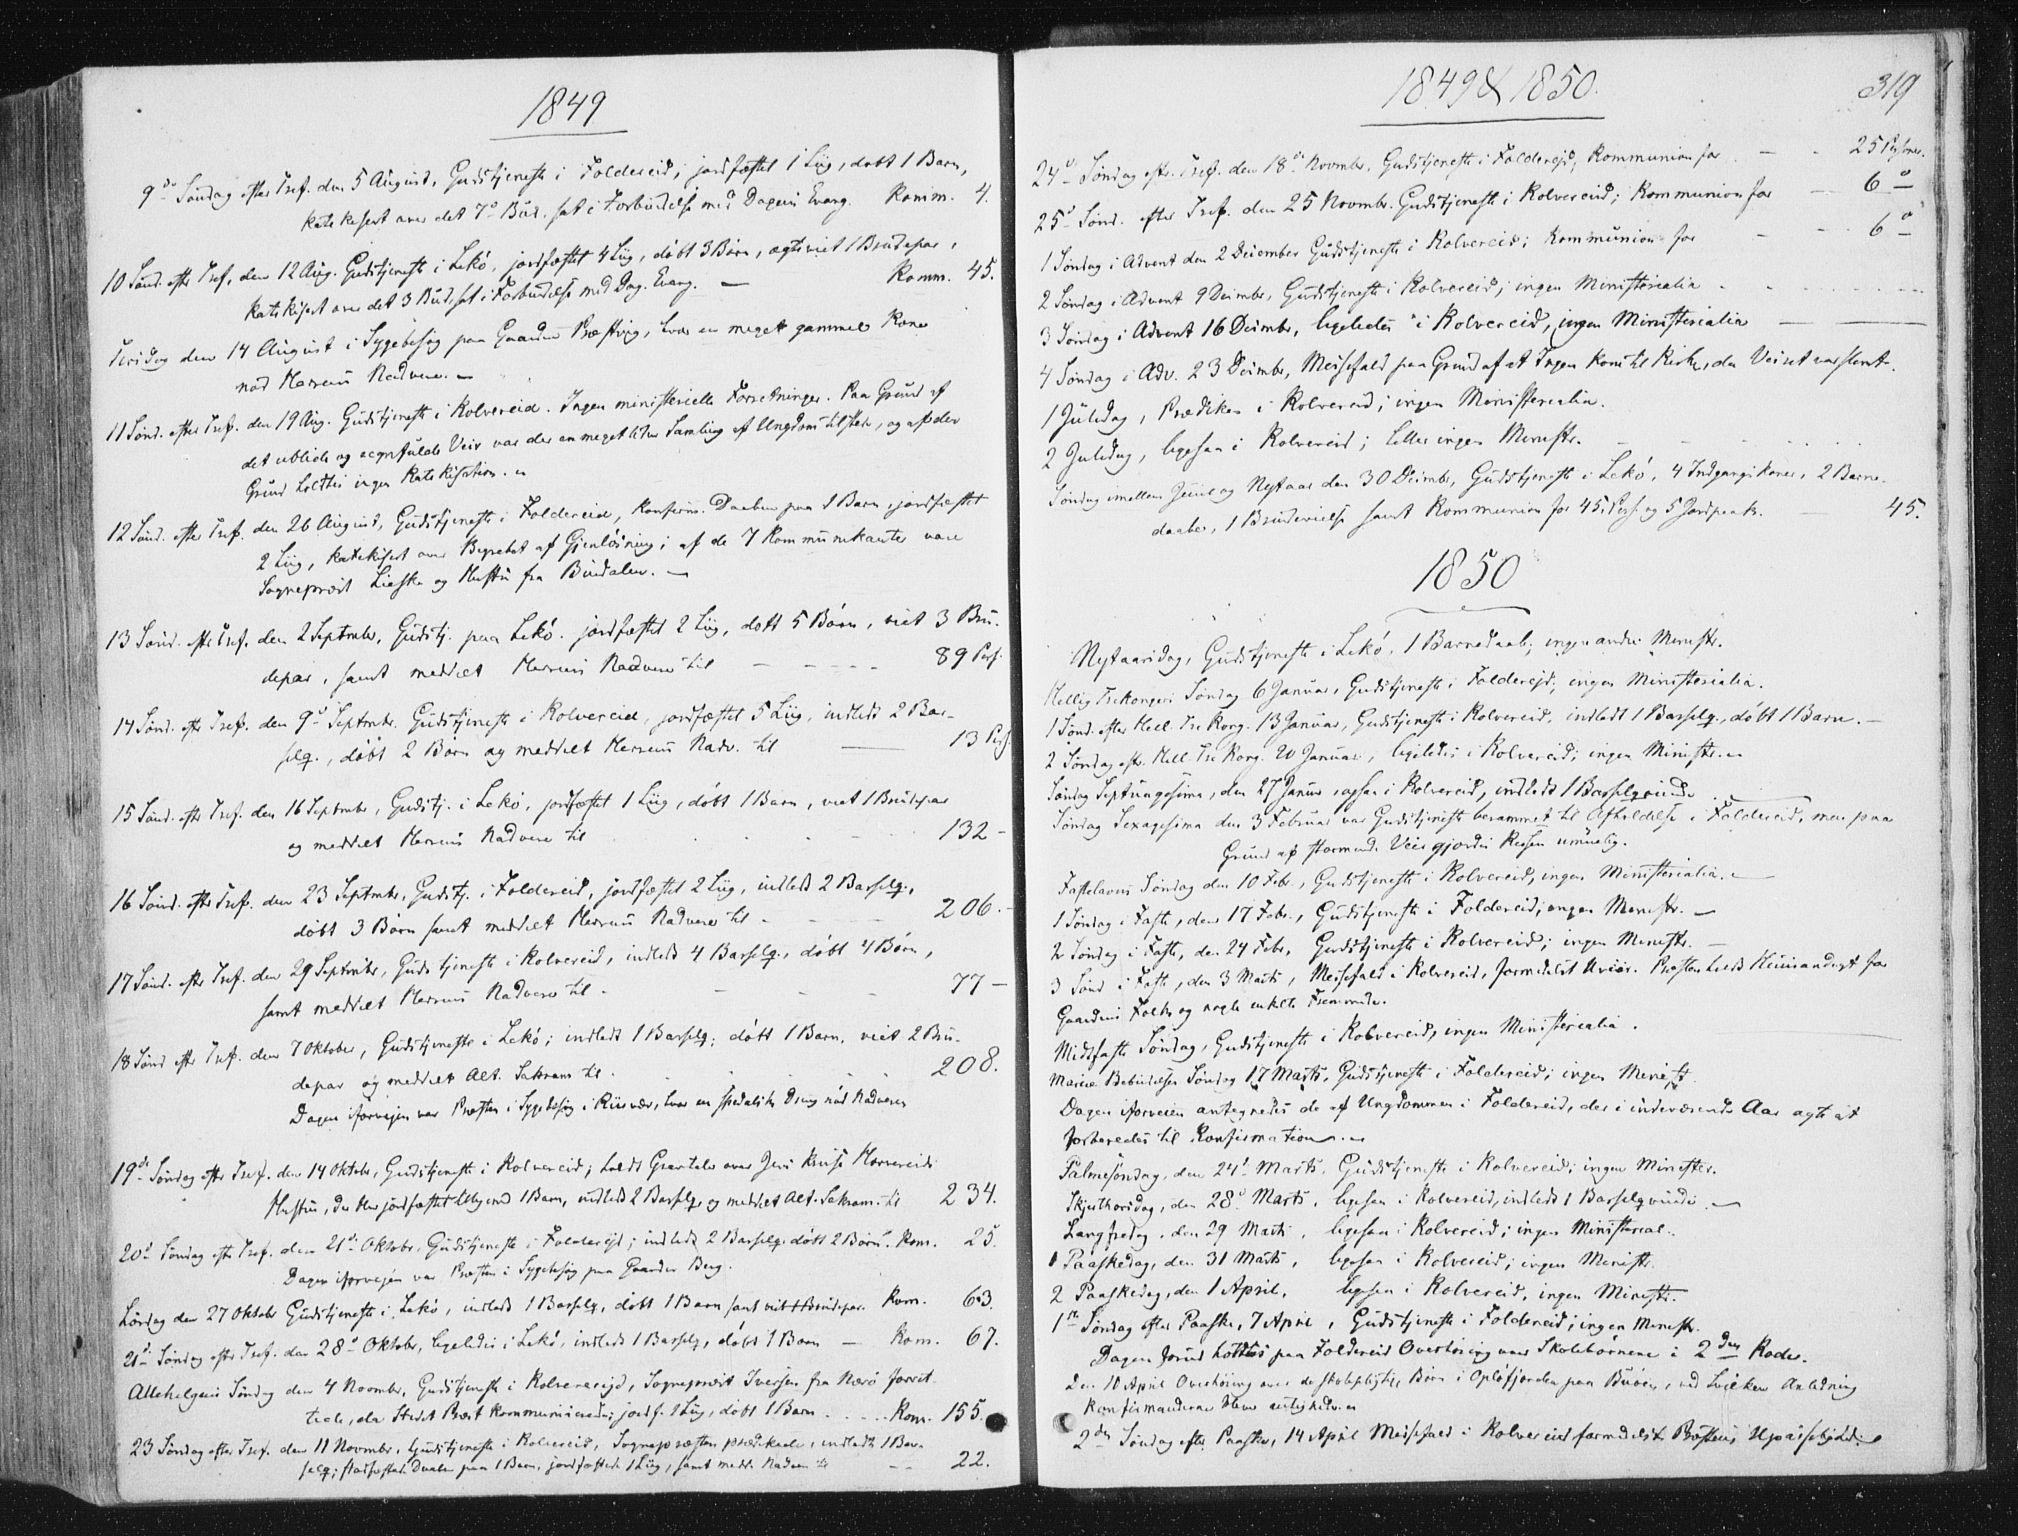 1849
9de Søndag efter Tref. den 5 August, Gudstjeneste i Foldereid, jordfæstet 1 Liig, døbt 1 Barn,
katekiseret over det 7de Bud, sat i Forbindelse med Dagens Evang. Komm. 4.
10 Sønd. efter Tref. den 12 Aug. Gudstjeneste i Lekö, jordfæstet 4 Liig, döbt 3 Börn, ægteviet 1 Brudepar,
katekiseret over det 3 Bud, sat i Forbindelse med Dag. Evang. — Komm. 45.
Tirsdag den 14 August i Sygebesög paa Gaarden Præstvig, hvor en meget gammel Kone
nöd Herrens Nadvere. —
11 Sönd. efter Tref. den 19 Aug. Gudstjeneste i Kolvereid. Ingen ministerielle Forretninger. Paa Grund af
det ublide og regnfulde Veir var der en meget liden Samling af Ungdom tilstede, og af den
Grund holdtes ingen Katekisation. —
12 Sönd. efter Tref. den 26 August, Gudstjeneste i Foldereid, Konfirm. Daaben paa 1 Barn, jordfæstet
2 Liig, katekiseret over Begrebet af Gjenlösning; af de 7 Kommunikanter vare
Sognepræst Lieske og Hustru fra Bindalen. —
13 Sönd. efter Tref. den 2 Septembr, Gudstj. paa Lekö. jordfæstet 2 Liig, döbt 5 Börn, viet 3 Bru-
depar, samt meddelt Herrens Nadvere til — — — 89 Pers.
14 Sönd. efter Tref. den 9de Septembr. Gudstjeneste i Kolvereid, jordfæstet 5 Liig, indledt 2 Bar-
selq., döbt 2 Börn og meddelt Herrens Nadv. til — 13 Pers.
15 Sönd. efter Tref. den 16 Septembr, Gudstj. i Lekö, jordfæstet 1 Liig, döbt 1 Barn, viet 1 Brudepar
og meddelt Herrens Nadvere til 132 —
16 Sönd. efter Tref. den 23 Septembr, Gudstj. i Foldereid, jordfæstet 2 Liig, indledt 2 Barselq.,
döbt 3 Börn samt meddelt Herrens Nadvere til 206. —
17 Sönd. efter Tref. den 29 Septembr, Gudstjeneste i Kolvereid, indledt 4 Barselq., döbt 4 Börn,
samt meddelt Herrens Nadvere til 77 —
18 Sönd efter Tref. den 7 Oktober, Gudstjeneste i Lekö; indledt 1 Barselq; döbt 1 Barn, viet 2 Bru-
depar og meddelt Alt. Sakram til 208.
Dagen iforvejen var Præsten i Sygebesög i Riisvær, hvor en spedalsk Dreng nöd Nadveren
19de Söndag efter Tref. den 14 Oktobr, Gudstjeneste i Kolvereid; holdt Gravtale over Jens Kruse Horvereids
Hustru, der blev jordfæstet tilligemed 1 Barn, indledt 2 Barselq. og meddelt Alt. Sakram. til 234.
20de Söndag efter Tref. den 21de Oktobr, Gudstjeneste i Foldereid; indledt 2 Barselq. döbt 2 Börn. Kom. 25.
Dagen iforvejen var Præsten i Sygebesög paa Gaarden Berg.
Lördag den 27 Oktobr Gudstjeneste i Lekö, indledt 1 Barselq, döbt 1 Barn samt viet 1 Brudepar. Kom. 63.
21de Söndag efter Tref. den 28de Oktobr, ligeledes i Lekö, indledt 1 Barselq, döbt 1 Barn — Kom. 67.
Allehelgens Söndag den 4 Novmbr, Gudstjeneste i Kolvereid, Sognepræst Iversen fra Nærö forret-
tede, da Stedets Præst kommunicerede; jordf. 1 Liig, döbt 1 Barn . . . . . Kom. 155.
23 Söndag efter Tref. den 11 Novmbr, Gudstjeneste i Kolvereid, Sognepræsten prædikede, indledt 1 Bar-
selq; stadfæstede Daaben paa 1 Barn, jordfæstede 1 Liig, samt medd. Nadvere til — 22.
1849 & 1850.
319
24de Söndag eftr. Tref. den 18de Novmbr, Gudstjeneste i Foldereid, Kommunion for — 25 Personer.
25de Sönd. efter Tref. den 25 Novmbr. Gudstjeneste i Kolvereid; Kommunion for — 6 —
1 Söndag i Advent den 2 December Gudstjeneste i Kolvereid; Kommunion for — 6 —
2 Söndag i Advent 9 Decmbr, Gudstjeneste i Kolvereid; ingen Ministerialia
3 Söndag i Advent 16 Decmbr, ligeledes i Kolvereid, ingen Ministerialia —
4 Söndag i Adv. 23 Decmbr, Messefald paa Grund af at Ingen kom til Kirke, da Veiret var slemt.
1 Juledag, Prædiken i Kolvereid; ingen Ministerialia.
2 Juledag, ligesaa i Kolvereid; heller ingen Ministr.
Söndag imellem Juul og Nytaar den 30 Decmbr, Gudstjeneste i Lekö, 4 Indgangskoner, 2 Barne-
daaber, 1 Brudevielse samt Kommunion for 45 Pers. og 5 Jordpaak. — 45.
1850
Nytaarsdag, Gudstjeneste i Lekö, 1 Barnedaab; ingen andre Ministr.
Hellig Trekongers Söndag 6 Januar, Gudstjeneste i Foldereid; ingen Ministerialia.
1 Sönd. efter Hell. Tre Kong. 13 Januar, Gudstjeneste i Kolvereid, indledt 1 Barselq., döbt 1 Barn. —
2 Söndag eftr. Hell. Tre Kong. 20 Januar, ligeledes i Kolvereid; ingen Ministr. —
Söndag Septuagesima, den 27 Januar ligesaa i Kolvereid, indledt 1 Barselqvinde
Söndag Sexagesima den 3 Februar var Gudstjeneste berammet til Afholdelse i Foldereid, men paa
Grund af stormende Veir gjordes Reisen umuelig.
Fastelavns Söndag den 10 Febr., Gudstjeneste i Kolvereid, ingen Ministerialia. —
1 Söndag i Faste, den 17 Febr., Gudstjeneste i Foldereid; ingen Ministr. —
2 Söndag i Faste, den 24 Febr, Gudstjeneste i Kolvereid; ingen Ministr. —
3 Sönd i Faste, den 3 Marts, Messefald i Kolvereid, formedelst Uveir. Præsten holdt Huusandagt for
Gaardens Folk og nogle enkelte Fremmede.
Midfaste Söndag, Gudstjeneste i Kolvereid, ingen Ministerialia.
Mariæ Bebudelses Söndag 17 Marts, Gudstjeneste i Foldereid; ingen Ministr.
Dagen iforveien antegnedes de af Ungdommen i Foldereid, der i indeværende Aar agte at
forberedes til Konfirmation. —
Palmesöndag, den 24de Marts, Gudstjeneste i Kolvereid; ingen Minister.
Skjærthorsdag, den 28de Marts, ligesaa i Kolvereid, indledt 1 Barselqvinde. —
Langfredag, den 29 Marts, ligesaa i Kolvereid; ingen Ministerial.
1 Paaskedag, den 31 Marts, ligesaa i Kolvereid; ingen Ministr.
2 Paaskedag, den 1 April, ligesaa i Kolvereid, ingen Ministr.
1ste Söndag efter Paaske, 7 April, Gudstjeneste i Foldereid; ingen Ministr.
Dagen forud holdtes paa Foldereid Overhöring over Skolebörnene i 2den Rode.
Den 10 April Overhöring over de skolepligtige Börn i Oplöfjorden paa Buöen, ved hvilken Anledning
Konfirmanderne bleve antegnede. —
2den Söndag efter Paaske, 14 April Messefald i Kolvereid formedelst Præstens Upasselighed.